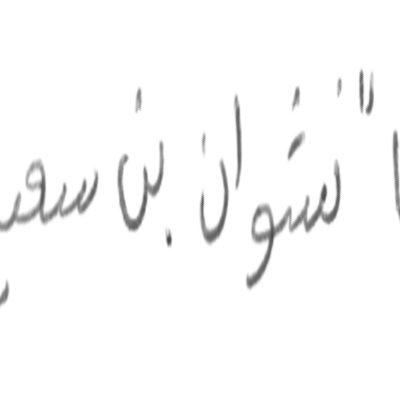 " نشوان بن سعيـ